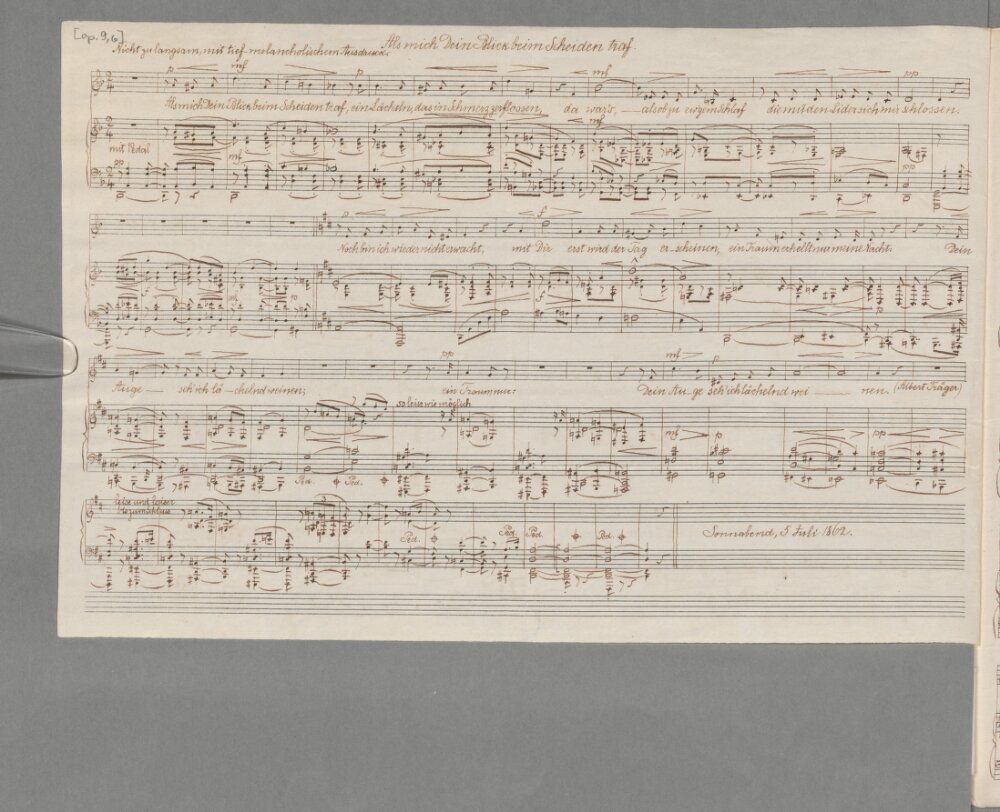 [op. 9,6]
Als mich Dein Blick beim Scheiden traf.
Nicht zu langsam, mit tief melancholischem Ausdruck.
p mf mf pp
Als mich Dein Blick beim Scheiden traf, ein Lächeln, das in Schmerz zerflossen, da war's, als ob zu ew'gem Schlaf die mit den Lider sich mir schlossen.
mf
mit Pedal
pp mf pp
p f
Noch bin ich wieder nicht erwacht, mit Dir erst wird der Tag erscheinen, ein Traum erhellt nur meine Nacht: Dein
f
pp mf p
Auge seh' ich lächelnd weinen; ein Traum nur: Dein Auge seh' ich lächelnd weinen. (Albert Träger)
so leise wie möglich
mf p pp
Ped. Ped.
leise und leiser
bis zum Schluss
3
Ped. Ped. Ped. Ped.
Sonnabend, 5 Juli 1862.